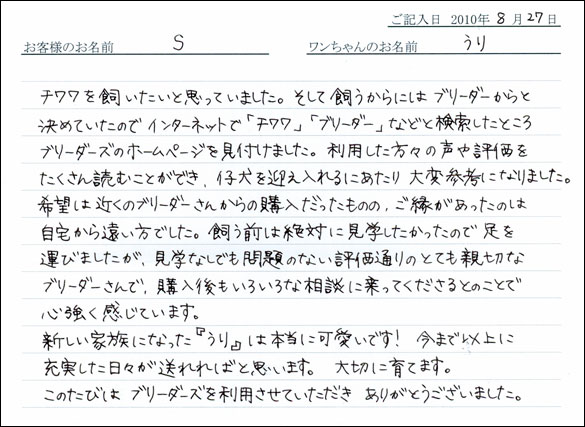 ご記入日 2010年 8月 27日
お客様のお名前 S ワンちゃんのお名前 うり
チワワを飼いたいと思っていました。そして飼うからにはブリーダーからと
決めていたのでインターネットで「チワワ」「ブリーダー」などと検索したところ
ブリーダーズのホームページを見付けました。利用した方々の声や評価を
たくさん読むことができ、仔犬を迎え入れるにあたり大変参考になりました。
希望は近くのブリーダーさんからの購入だったものの、ご縁があったのは
自宅から遠い方でした。飼う前は絶対に見学したかったので足を
運びましたが、見学なしでも問題のない評価通りのとても親切な
ブリーダーさんで、購入後もいろいろな相談に乗ってくださるとのことで
心強く感じています。
新しい家族になった『うり』は本当に可愛いです! 今まで以上に
充実した日々が送れればと思います。 大切に育てます。
このたびは ブリーダーズを利用させていただき ありがとうございました。